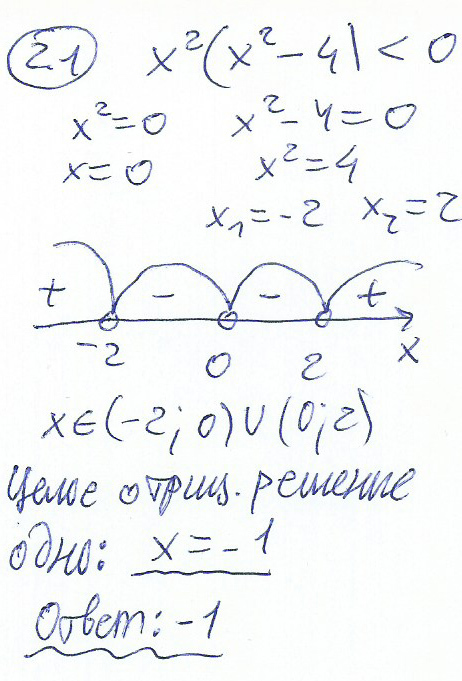 2.1 x²(x²-4)<0
x²=0 x²-4=0
x=0 x²=4
x₁=-2 x₂=2
+ - - +
-2 0 2 x
x∈(-2;0)∪(0;2)
Целое отриц. решение
одно: x=-1
Ответ: -1